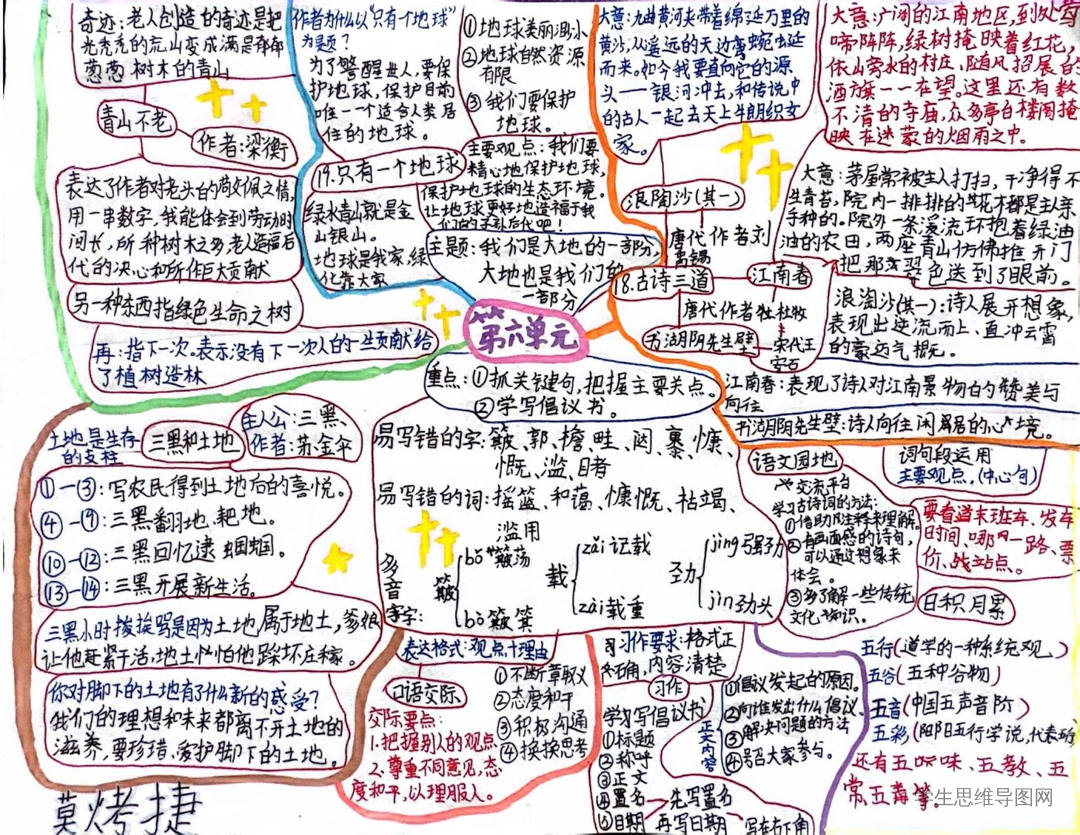 奇迹：老人创造的奇迹是把
光秃秃的荒山变成满是郁郁
葱葱树木的青山
青山不老
作者：梁衡
表达了作者对老头的
用一串数字，我能体会到劳动时
间长，所种树木之多老人造福后
代的决心和所作巨大贡献
另一种东西指绿色生命之树
再：指下一次。表示没有下一次人的一生贡献给
了植树造林
作者为什么以“只有个地球”
为题？
为了警醒世人，要保
护地球，保护目前
唯一一个适合人类居
住的地球。
①地球美丽渺小
②地球自然资源
有限
③我们要保护
地球。
19.只有一个地球
主要观点：我们要
精心地保护地球，
保护地球的生态环境。
让地球更好地造福于我
们的子孙后代吧！
绿水青山就是金
山银山。
地球是我家，绿
化靠大家
主题：我们是大地的一部分，
大地也是我们的
一部分
第六单元
大意：九曲黄河夹带着绵延万里的
黄沙，从遥远的天边蜿蜒
而来。如今我要直向它的源
头——银河冲去，和传说中
的古人一起去天上牛郎织女
家。
浪陶沙(其一)
唐代作者刘
禹锡
18.古诗三道
江南春
唐代作者牡杜牧
书湖阴先生壁
宋代王
安石
大意：广阔的江南地区，到处莺
啼阵阵，绿树掩映着红花，
依山旁水的村庄、随风招展的
酒旗一一在望。这里还有数
不清的寺庙，众多亭台楼阁掩
映在迷蒙的烟雨之中。
大意：茅屋常被主人打扫，干净得不
生青苔，院内一排排的花木都是主人亲
手种的。院外一条溪流环抱着绿油
油的农田，两座青山仿佛推开门
把那翠色送到了眼前。
浪淘沙(其一)：诗人展开想象，
表现出逆流而上、直冲云霄
的豪迈气概。
江南春：表现了诗人对江南景物的赞美与
向往
书湖阴先生壁：诗人向往闲居的心境。
重点：①抓关键句，把握主要关点。
②学写倡议书。
易写错的字：簸、郭、檐、畦、闼、裹、慷
慨、滥、睹
易写错的词：摇篮、和蔼、慷慨、枯竭、
滥用
多
音
字：
簸
bǒ 簸荡
bò 簸箕
载
zǎi 记载
zài 载重
劲
jìng 强劲
jìn 劲头
土地是生存
的支柱
三黑和土地
主人公：三黑、
作者：苏金伞
①—③：写农民得到土地后的喜悦。
④—⑨：三黑翻地、耙地。
⑩—⑫：三黑回忆逮蝈蝈。
⑬—⑭：三黑开展新生活。
三黑小时拨挨骂是因为土地属于地主，爹娘
让他赶紧干活，地主怕他踩坏庄稼。
你对脚下的土地有了什么新的感受？
我们的理想和未来都离不开土地的
滋养，要珍惜、爱护脚下的土地。
莫烤捷
表达格式：观点+理由
口语交际
①不断章取义
②态度和平
③积极沟通
④换换思考
交际要点：
1.把握别人的观点
2.尊重不同意见，态
度和平，以理服人。
习作要求：格式正
确，内容清楚
习作
学习写倡议书
①标题
②称呼
③正文
④署名
⑤日期
先写署名
再写日期
写在右下角
正文内容
①倡议发起的原因。
②向谁发出什么倡议
③解决问题的方法
④号召大家参与。
语文园地
交流平台
学习古诗词的方法：
①借助注释来理解。
②有画面感的诗句，
可以通过想象来
体会。
③多了解一些传统
文化知识。
词句段运用
主要观点，(中心句)
要看道末班车、发车
时间、哪一路、票
价、战站点。
日积月累
五行(道学的一种系统观)
五谷(五种谷物)
五音(中国五声音阶)
五彩(阴阳五行学说，代表
还有五味、五教、五
常、五毒等。
生思维导图网